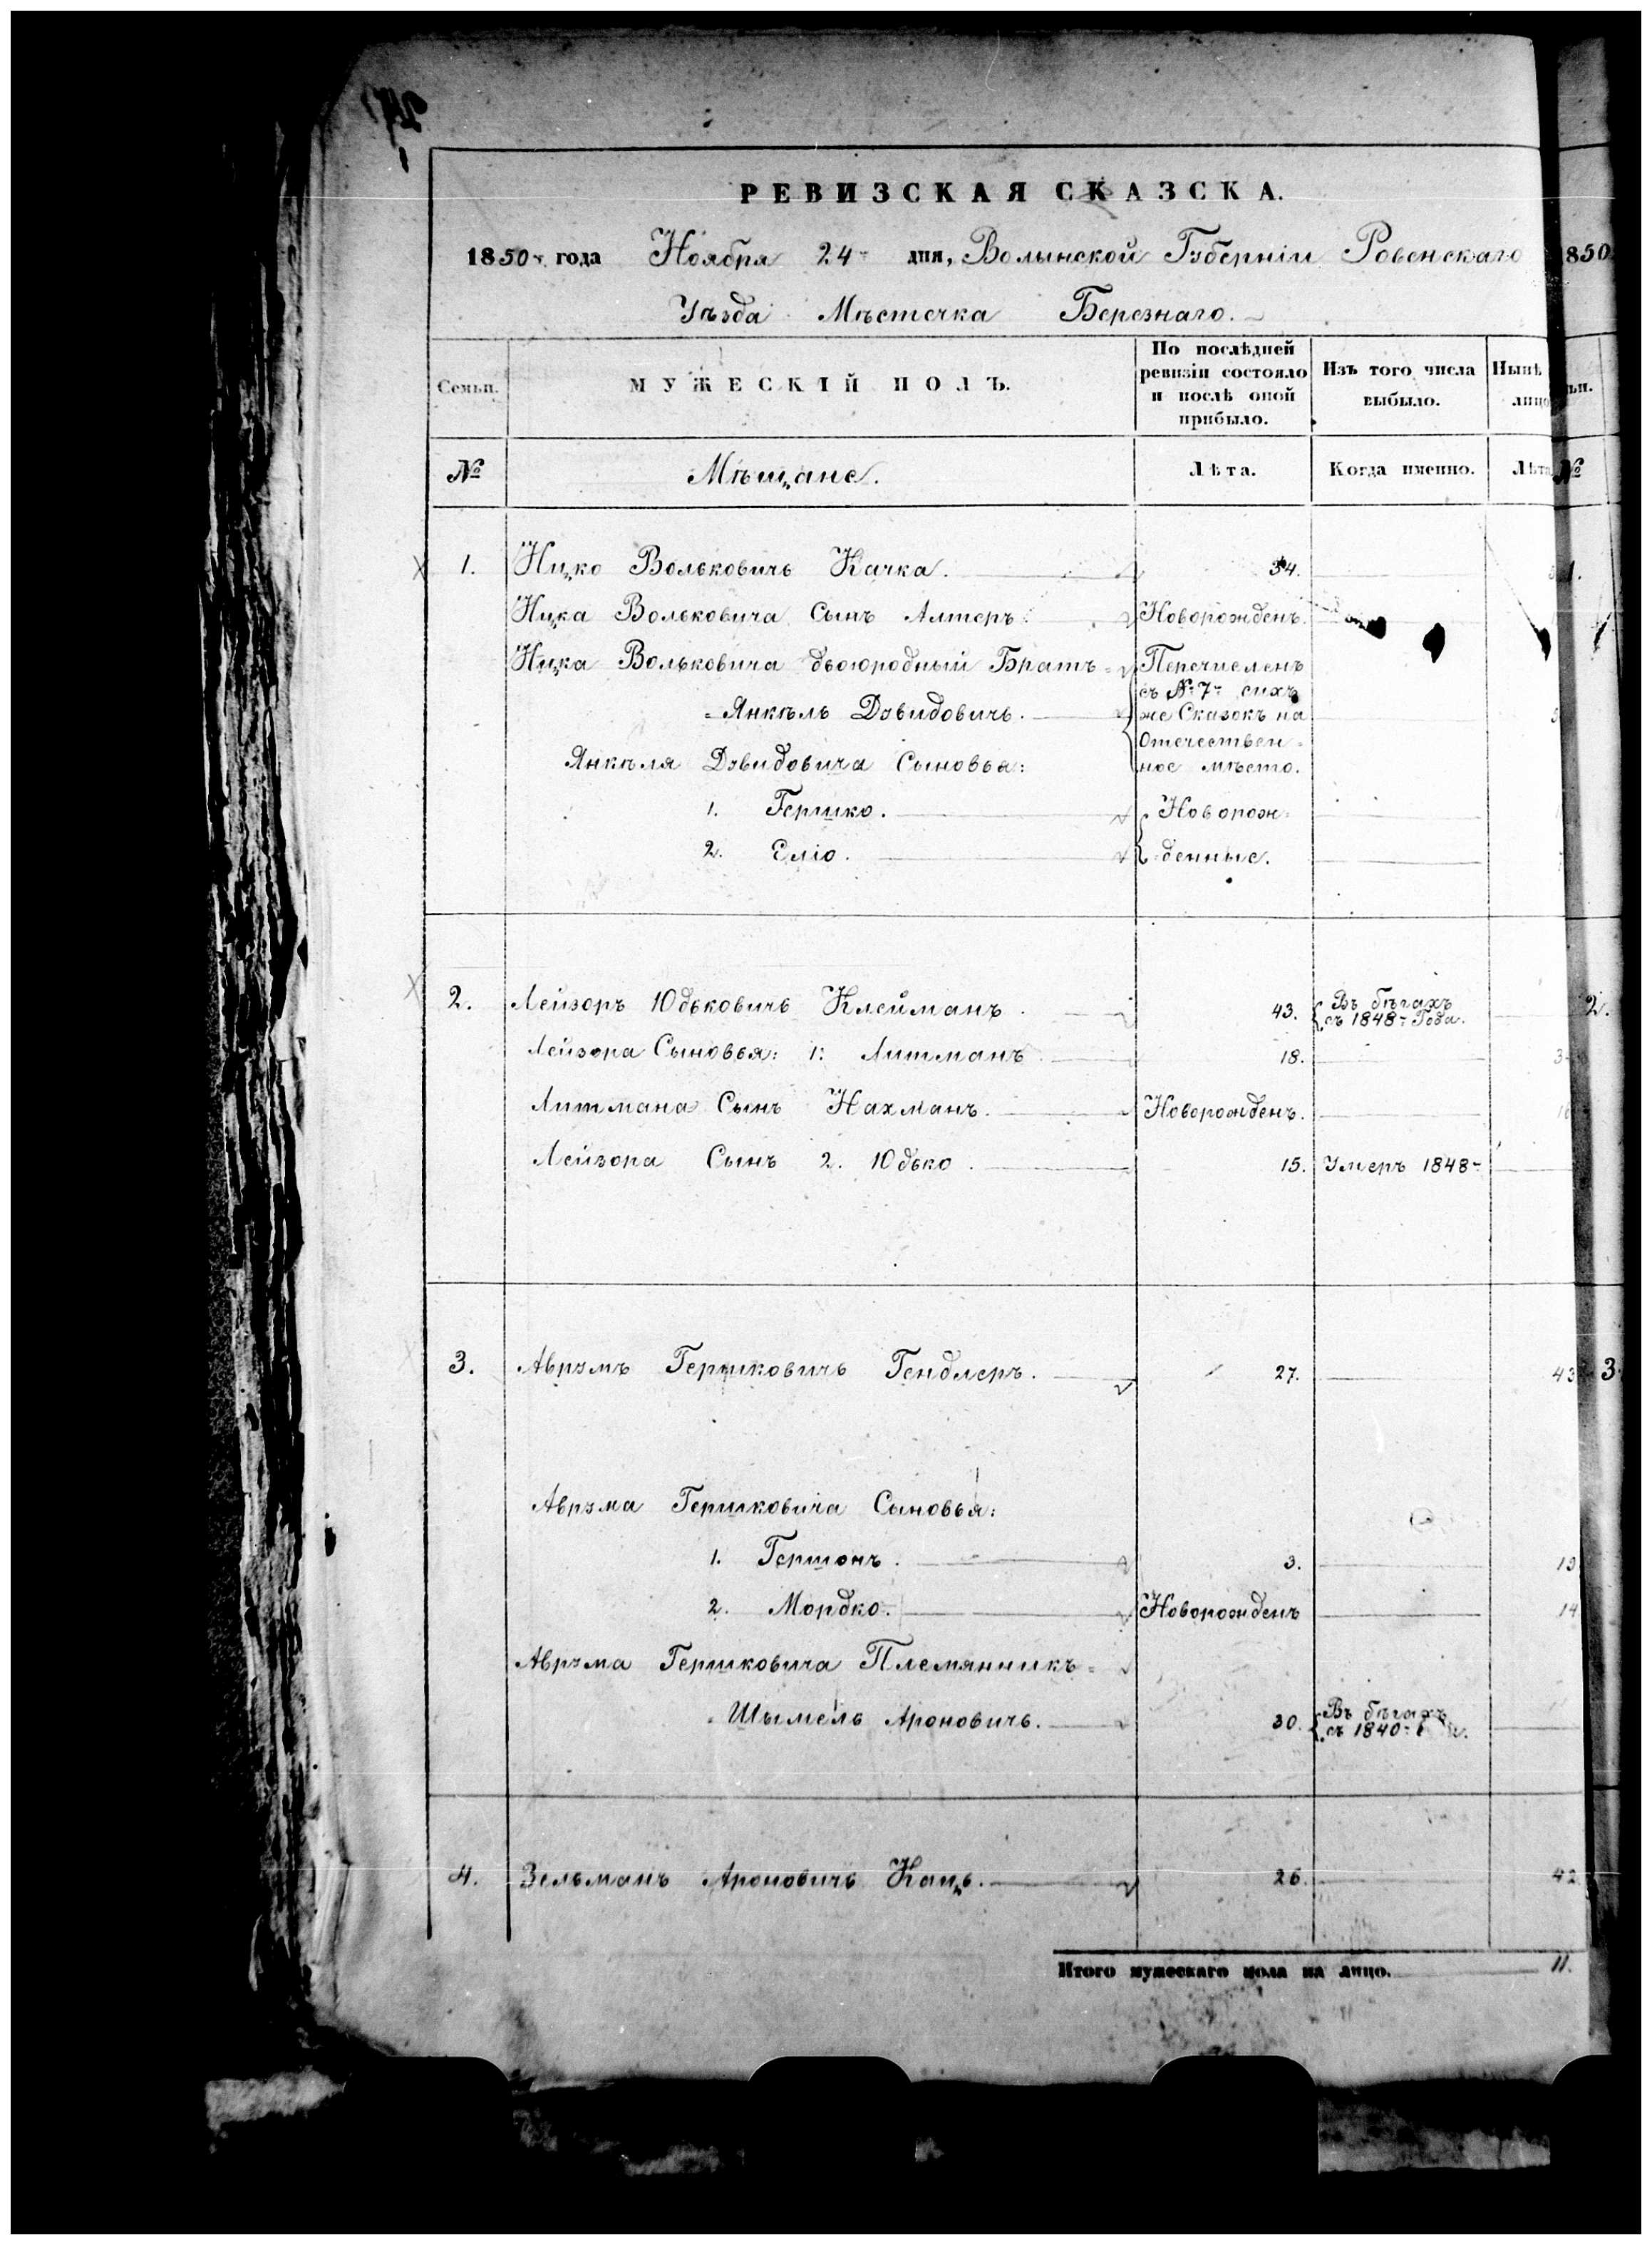 РЕВИЗСКАЯ СКАЗСКА.
1850 года Ноября 24 дня, Волынской Губерніи Ровенскаго
Уѣзда Мѣстечка Березнаго.
Семьи.
МУЖЕСКІЙ ПОЛЪ.
По послѣдней
ревизіи состояло
и послѣ оной
прибыло.
Изъ того числа
выбыло.
Нынѣ
лицо
№
Мѣщане.
Лѣта.
Когда именно.
Лѣта
1. Ицко Вольковичъ Качка. 34.
Ицка Вольковича Сынъ Алтеръ. Новорожденъ.
Ицка Вольковича двоюродный Братъ = Перечисленъ
съ № 7 сихъ
= Янкѣль Дэвидовичъ. же Сказокъ на
Отечествен=
Янкѣля Дэвидовича Сыновья: ное мѣсто.
1. Гершко. Новорож=
2. Еліо. =денные.
2. Лейзоръ Юдьковичъ Клейманъ. 43. Въ бѣгахъ
съ 1848 Года.
Лейзора Сыновья: 1: Литманъ 18.
Литмана Сынъ Нахманъ. Новорожденъ.
Лейзора Сынъ 2. Юдько. 15. Умеръ 1848
3. Аврэмъ Гершковичъ Гендлеръ. 27. 43
Аврэма Гершковича Сыновья:
1. Гершонъ. 3. 19
2. Мордко. Новорожденъ 14
Аврэма Гершковича Племянникъ =
= Шымель Ароновичъ. 30. Въ бѣгахъ
съ 1840
4. Зельманъ Ароновичъ Кацъ. 26. 42
Итого мужескаго пола на лицо. 11.
850
№
1.
2.
3.